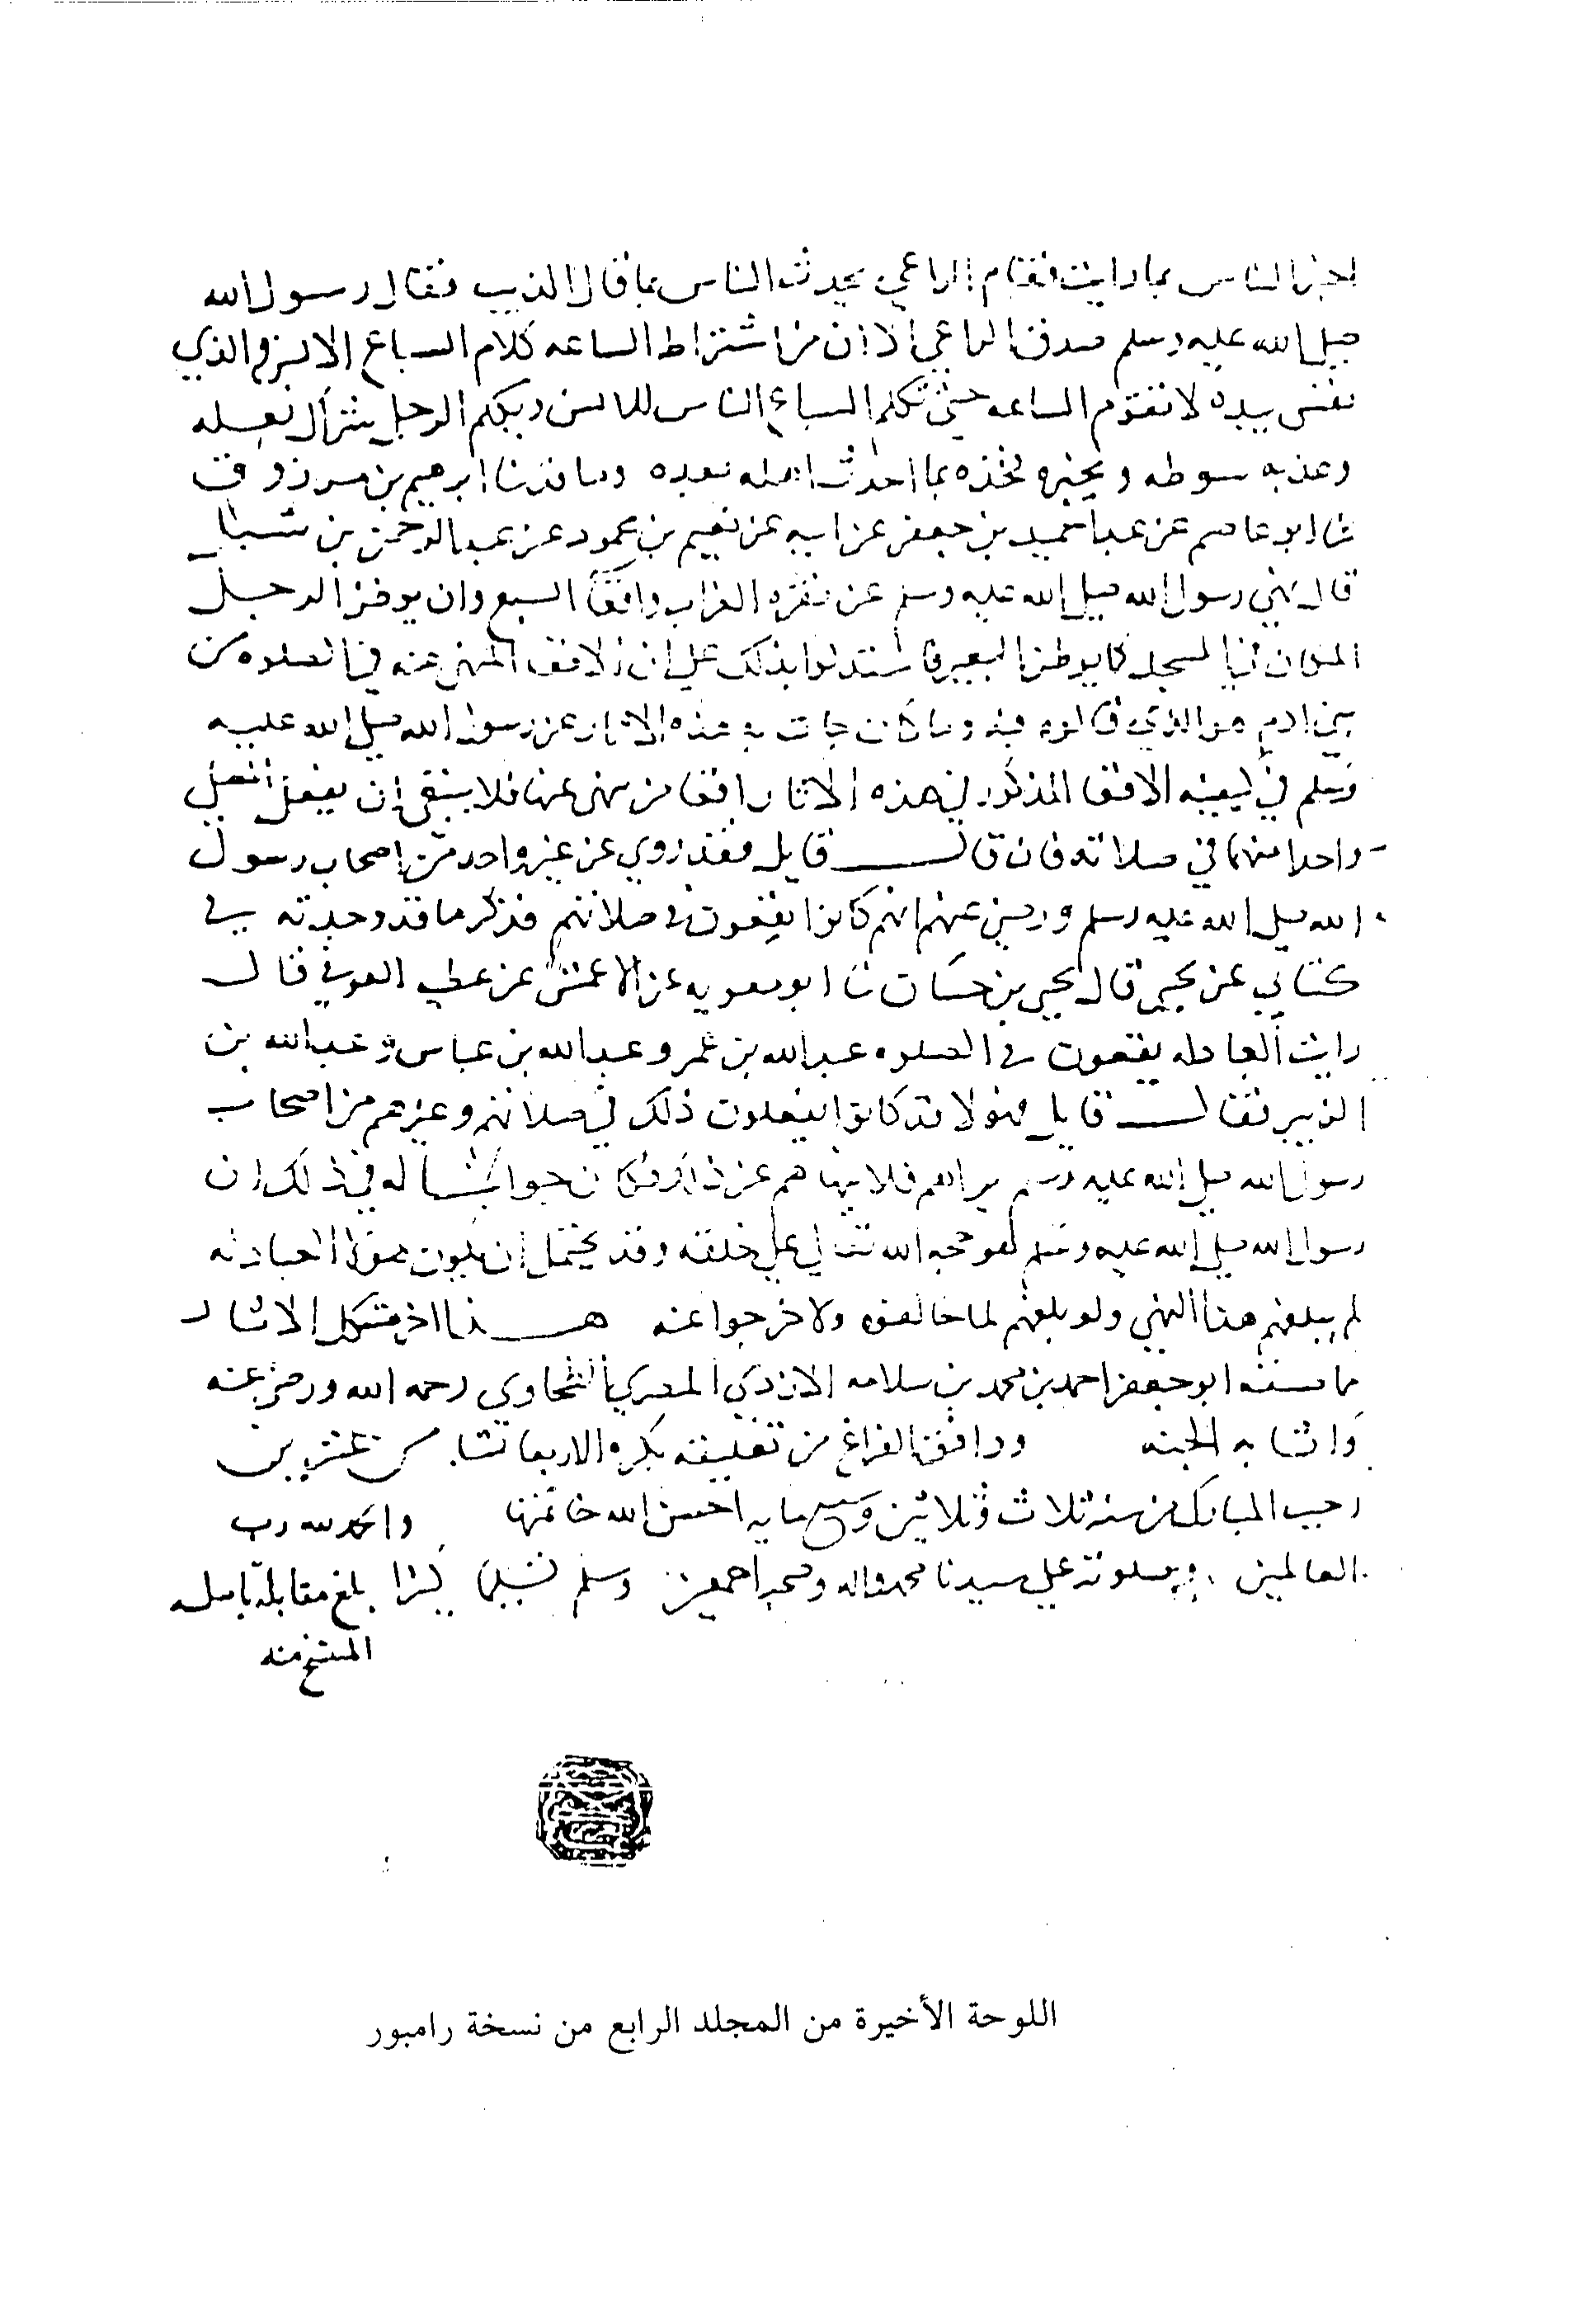 اخبر الناس بما رايت فقام الراعي يحدث الناس بما قال الذيب فقال رسول الله
صلى الله عليه وسلم صدق الراعي الا ان من اشتراط الساعه كلام السباع الانس والذي
نفسي بيده لا تقوم الساعه حتى تكلم السباع الناس ويكلم الرجل شراك نعله
وعذبه سوطه ويخبره فخذه بما احدث اهله بعده وما قد ثنا ابرهيم بن مرزوق
ثنا ابو عاصم عن عبد الحميد بن جعفر عن ابيه عن تميم بن محمود عن عبد الرحمن بن شبل
قال نهى رسول الله صلى الله عليه وسلم عن نقره الغراب واقعا السبع وان يوطن الرجل
المكان في المسجد كما يوطن البعير فاستدلوا بذلك على ان الاقعا المنهي عنه في الصلوه من
بني ادم هو الذي قالوه فيه وما كان جات به هذه الاثار عن رسول الله صلى الله عليه
وسلم في الاقعا المذكور في هذه الاثار اقعا من نهى عنه فلا ينبغي ان يفعل المصلي
واحدا منهما في صلاته فان قال قايل فقد روي عن غير واحد من اصحاب رسول
الله صلى الله عليه وسلم ورضي عنهم انهم كانوا يقعون في صلاتهم فذكر ما قد وجدته في
كتابي عن يحيى قال يحيى بن حسان ثنا ابو معويه عن الاعمش عن عطيه العوفي قال
رايت العبادله يقعون في الصلوه عبد الله بن عمر وعبد الله بن عباس وعبد الله بن
الزبير فقال قايل فهولا قد كانوا يفعلون ذلك في صلاتهم وغيرهم من اصحاب
رسول الله صلى الله عليه وسلم يراهم فلا ينهاهم عن ذلك فكان جوابنا له في ذلك ان
رسول الله صلى الله عليه وسلم هو حجه الله تعالى على خلقه وقد يحتمل ان يكون هولا العبادله
لم يبلغهم هذا النهي ولو بلغهم لما خالفوه ولا خرجوا عنه هذا اخر مشكل الاثار
مما صنفه ابو جعفر احمد بن محمد بن سلامه الازدي المصري الطحاوي رحمه الله ورضي عنه
واثابه الجنه ووافق الفراغ من تعليقه بكره الاربعا عشرين
رجب المبارك من سنه ثلاث وثلاثين وسبع مايه احسن الله خاتمتها والحمد لله رب
العالمين وصلوته على سيدنا محمد واله وصحبه اجمعين وسلم تسليما كثيرا بلغ مقابلة باصله
المنتسخ منه
اللوحة الأخيرة من المجلد الرابع من نسخة رامبور